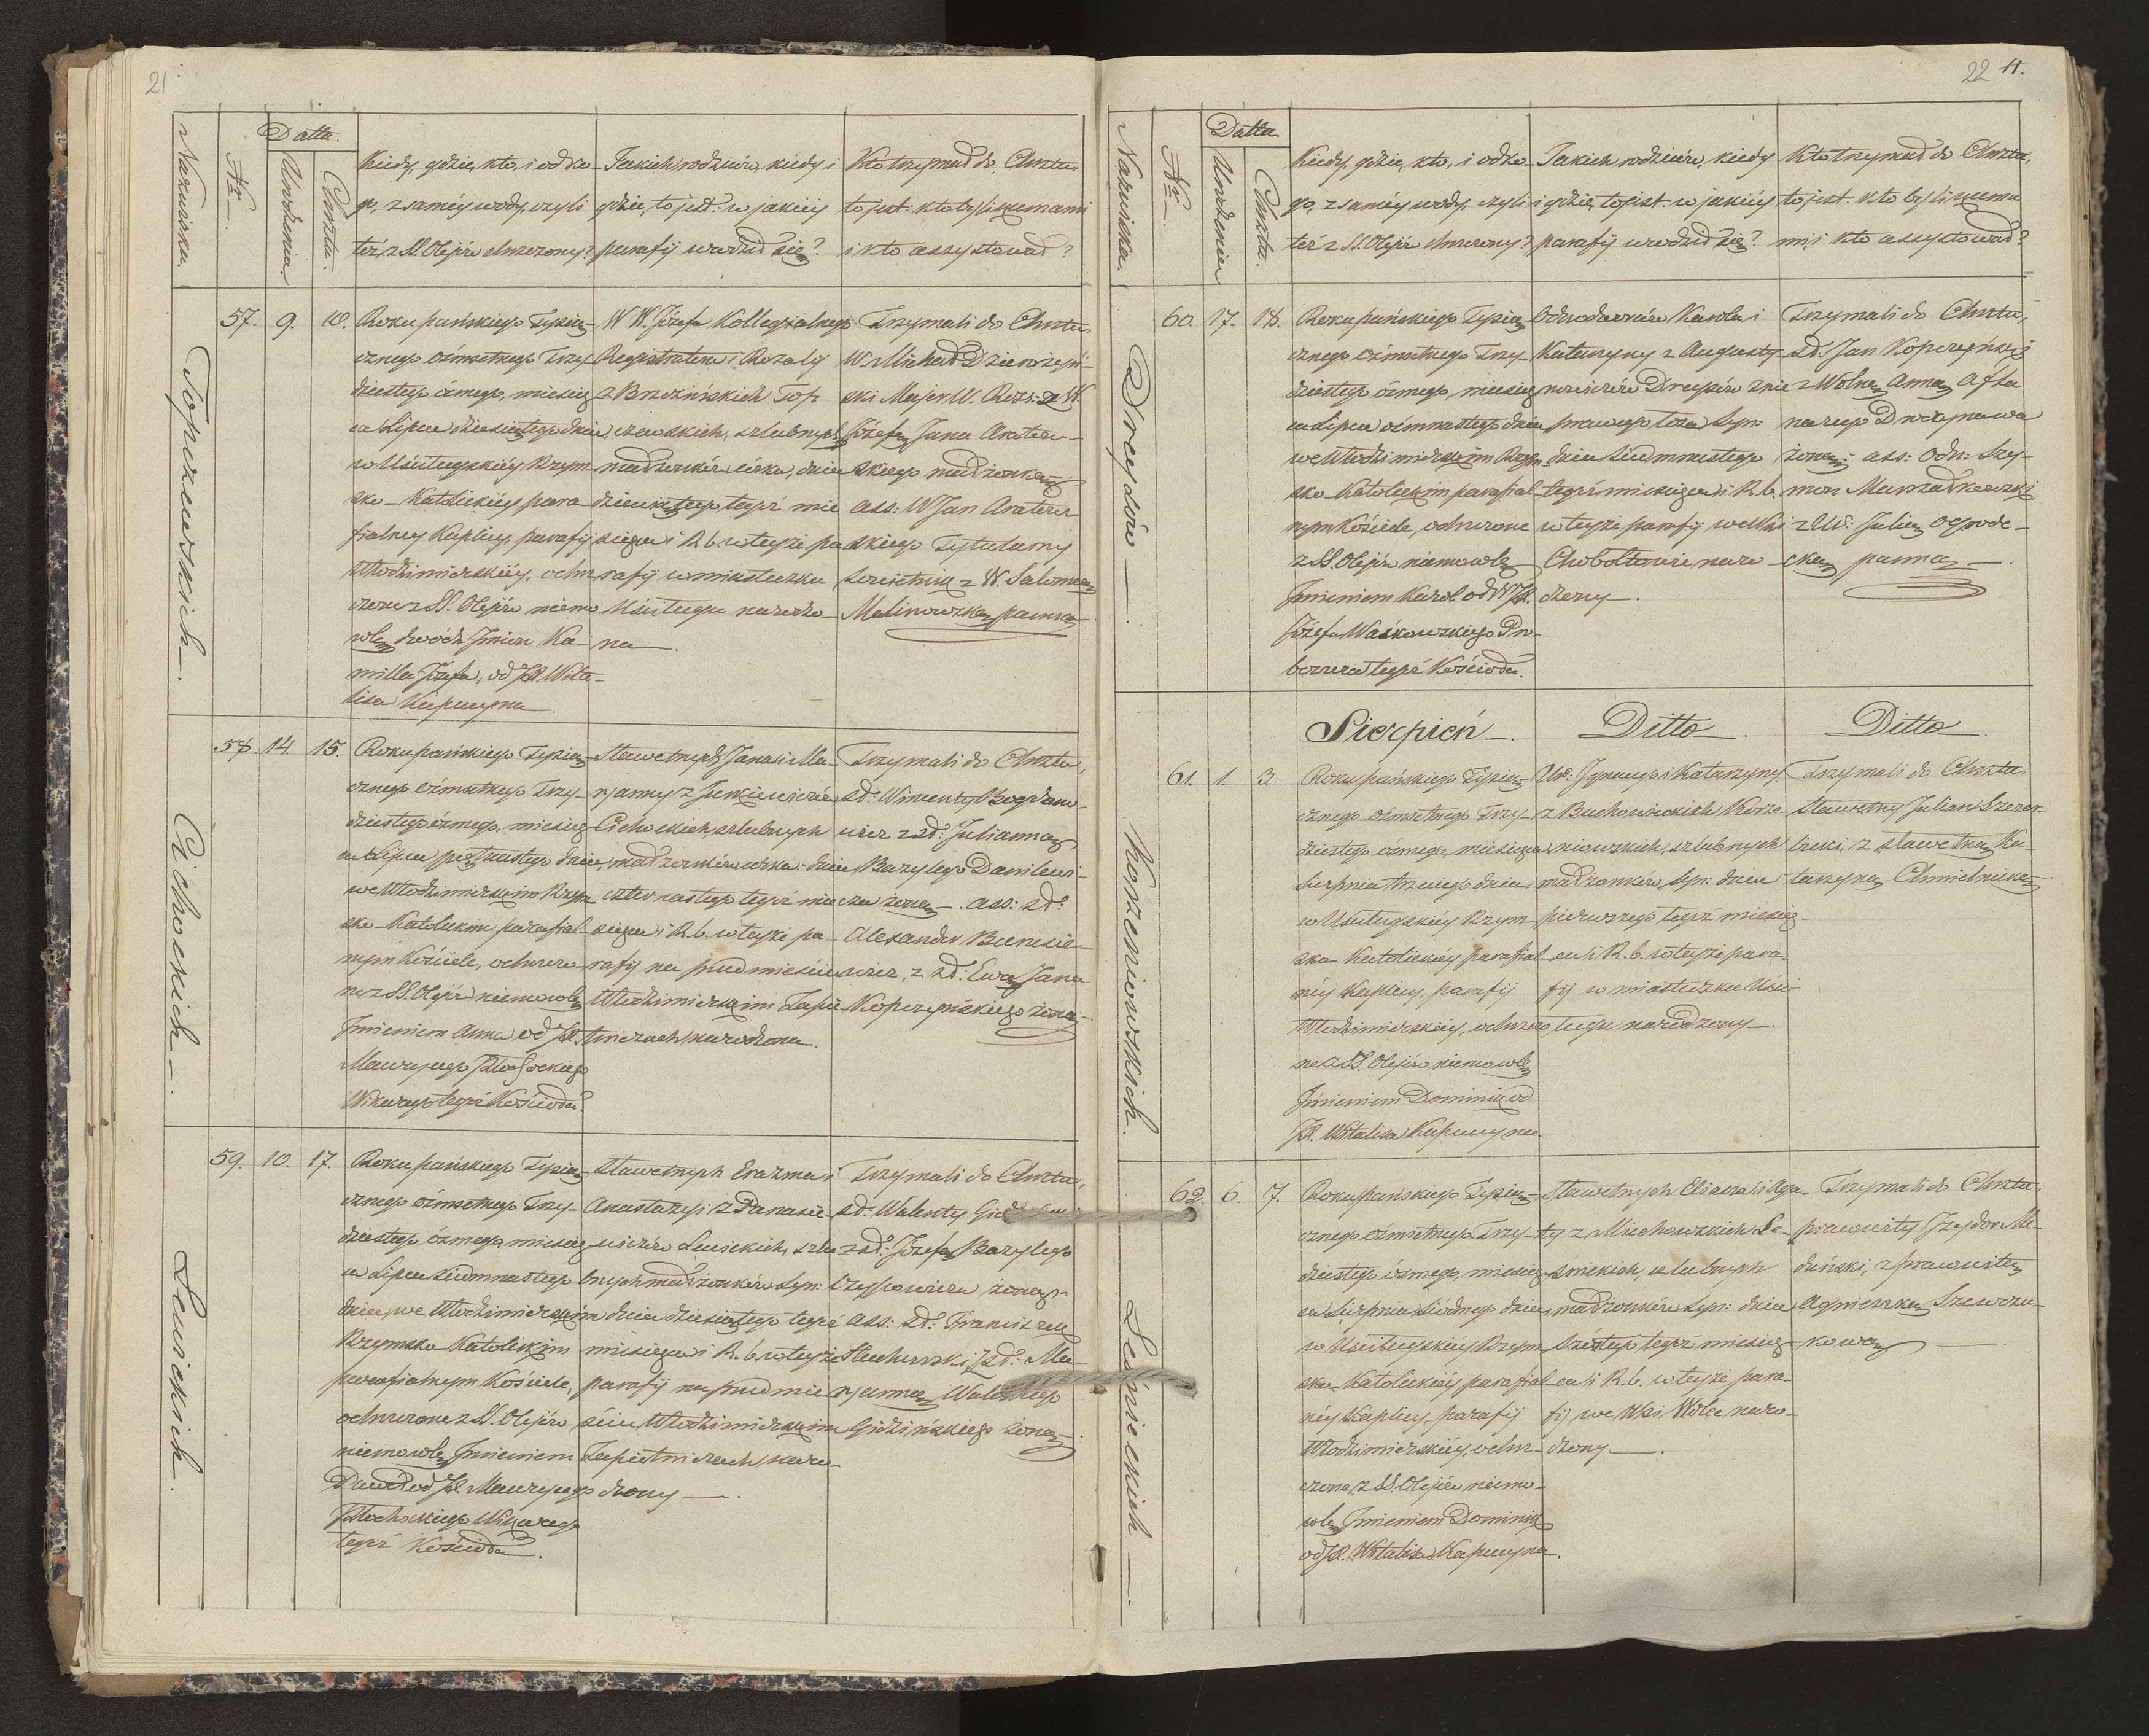 21
Nazwiska.
Nr
Datta.
Urodzenia
Chrztu.
Kiedy, gdzie, kto, i od ko-
go, z saméy wody, czyli
téż z SS. Olejów chrzczony?
Jakich rodziców, kiedy i
gdzie, to jest: w jakiéy
parafij urodził się?
Kto trzymał do Chrztu
to jest: kto byli kumami
i kto assystował?
Topczewskich
57. 9. 10.
Roku pańskiego Tysią-
cznego ośmsetnego Trzy
dziestego ósmego, miesią
ca Lipca dziesiątego dnia,
w Uściługskiéy Rzym
sko-Katolickiéy para-
fialney Kaplicy, parafij
Włodzimierskiéy, ochrz
czone z SS. Olejów niemo
wlę dwóch Jmion Ka-
milla Józefa, od JX. Wita-
lisa Kapucyna.
WW. Józefa Kollegialnego
Registratora i Rozalij
z Brzezińskich Top
czewskich, szlubnych
małżonków córka, dnia
dziewiątego tegoż mie
siąca i R. b. w teyże pa
rafij w miasteczku
Uściługu narodzo-
na.
Trzymali do Chrztu,
W. Michał Dzierożyń-
ski Major W. Ross: z W.
Józefą Jana Arater-
skiego małżonką
ass: W Jan Arater-
skiego Tytularny
Sowietnik z W. Salomeą
Malinowską panną
Cichockich
58. 14. 15.
Roku pańskiego Tysią-
cznego ośmsetnego Trzy-
dziestego ósmego, miesią
ca Lipca piętnastego dnia,
we Włodzimierskim Rzym
sko-Katolickim parafial-
nym Kościele, ochrzczo-
ne z SS. Olejów niemowlę
Jmieniem Anna od JX.
Maurycego
Wikarego tegoż Kościoła.
Sławetnych Jana i Ma-
ryanny z Jurkiewiczów
Cichockich, szlubnych
małżonków córka: dnia
czternastego tegoż mie
siąca i R. b. w teyże pa-
rafij na przedmieściu
Włodzimierskim Zapia-
tniczach narodzona.
Trzymali do Chrztu,
sł: Wincenty Bogdano-
wicz z sł: Julianną
Bazylego Danilewi-
cza żoną. ass: sł:
Alexander
wicz, z sł: Ewą Jana
Kopczyńskiego żoną.
Lewickich.
59. 10. 17.
Roku pańskiego Tysią-
cznego ośmsetnego Trzy-
dziestego ósmego, miesią
ca Lipca siedmnastego
dnia, we Włodzimierskim
Rzymsko-Katolickim
parafialnym Kościele,
ochrzczone z SS. Olejów
niemowlę Jmieniem
od JX. Maurycego
Wikarego
tegoż Kościoła.
Sławetnych Erazma i
Anastazyi z Panasie-
wiczów Lewickich, szlu
bnych małżonków syn:
dnia dziesiątego tegoż
miesiąca i R. b. w teyże
parafij na przedmie
ściu Włodzimierskim
Zapiatniczach naro-
dzony.
Trzymali do Chrztu,
sł: Walenty
z sł: Józefą Bazylego
żoną.
ass: sł: Franciszek
z sł: Ma-
ryanną Walentego
Gidzińskiego żoną.
22 11.
Nazwiska.
Nr
Datta.
Urodzenia
Chrztu.
Kiedy, gdzie, kto, i od ko-
go, z saméy wody, czyli
téż z SS. Olejów chrzczony?
Jakich rodziców, kiedy
i gdzie, to jest: w jakiéy
parafij urodził się?
Kto trzymał do Chrztu,
to jest: kto byli kuma
mi, i kto assystował?
Drepsów
60. 17. 18.
Roku pańskiego Tysią
cznego ośmsetnego Trzy-
dziestego ósmego, miesią
ca Lipca ośmnastego dnia
we Włodzimierskim Rzym
sko-Katolickim parafial-
nym Kościele, ochrzczone
z SS. Olejów niemowlę
Jmieniem Karol od JX.
Józefa Waśkowskiego Pro-
boszcza tegoż Kościoła.
Odnodworców Karola i
Katarzyny z Augusty-
nowiczów Drepsów z nie
prawego łoża syn:
dnia siedmnastego
tegoż miesiąca i R. b.
w teyże parafij we Wsi
Chobołtowie naro
dzony.
Trzymali do Chrztu,
sł: Jan Kopczyński
z Wolną Anną
żoną: ass: Odn: Szy-
mon
z Ur: Julią
panną.
Korzeniowskich
Sierpień Ditto Ditto
61. 1. 3.
Roku pańskiego Tysią-
cznego ośmsetnego Trzy-
dziestego ósmego, miesiąca
Sierpnia trzeciego dnia,
w Uściługskiéy Rzym-
sko Katolickiéy parafial
néy Kaplicy, parafij
Włodzimierskiéy, ochrzczo
ne z SS. Olejów niemowlę
Jmieniem Dominik od
JX. Witalisa Kapucyna.
Ur: Jgnacego i Katarzyny
z Buchowieckich Korze-
niowskich, szlubnych
małżonków, syn: dnia
pierwszego tegoż miesią-
ca i R. b. w teyże para-
fij w miasteczku Uści-
ługu narodzony.
Trzymali do Chrztu
sławetny Julian Szczer-
bicki, z sławetną Ka-
tarzyną Chmielnicką.
Leśnieckich
62. 6. 7.
Roku pańskiego Tysią-
cznego ośmsetnego Trzy-
dziestego ósmego, miesią-
ca Sierpnia siódmego dnia,
w Uściługskiéy Rzym-
sko-Katolickiéy parafial-
néy Kaplicy, parafij
Włodzimierskiéy, ochrz-
czone z SS. Olejów niemo-
wlę Jmieniem Dominik
od JX. Witalisa Kapucyna.
Sławetnych i Aga-
ty z Miechowskich Le-
śnickich, szlubnych
małżonków syn: dnia
szóstego tegoż miesią-
ca i R. b. w teyże para-
fij we Wsi Wólce naro-
dzony.
Trzymali do Chrztu,
pracowity Jzydor Me-
duński, z pracowitą
Agnieszką Szewczu-
kową